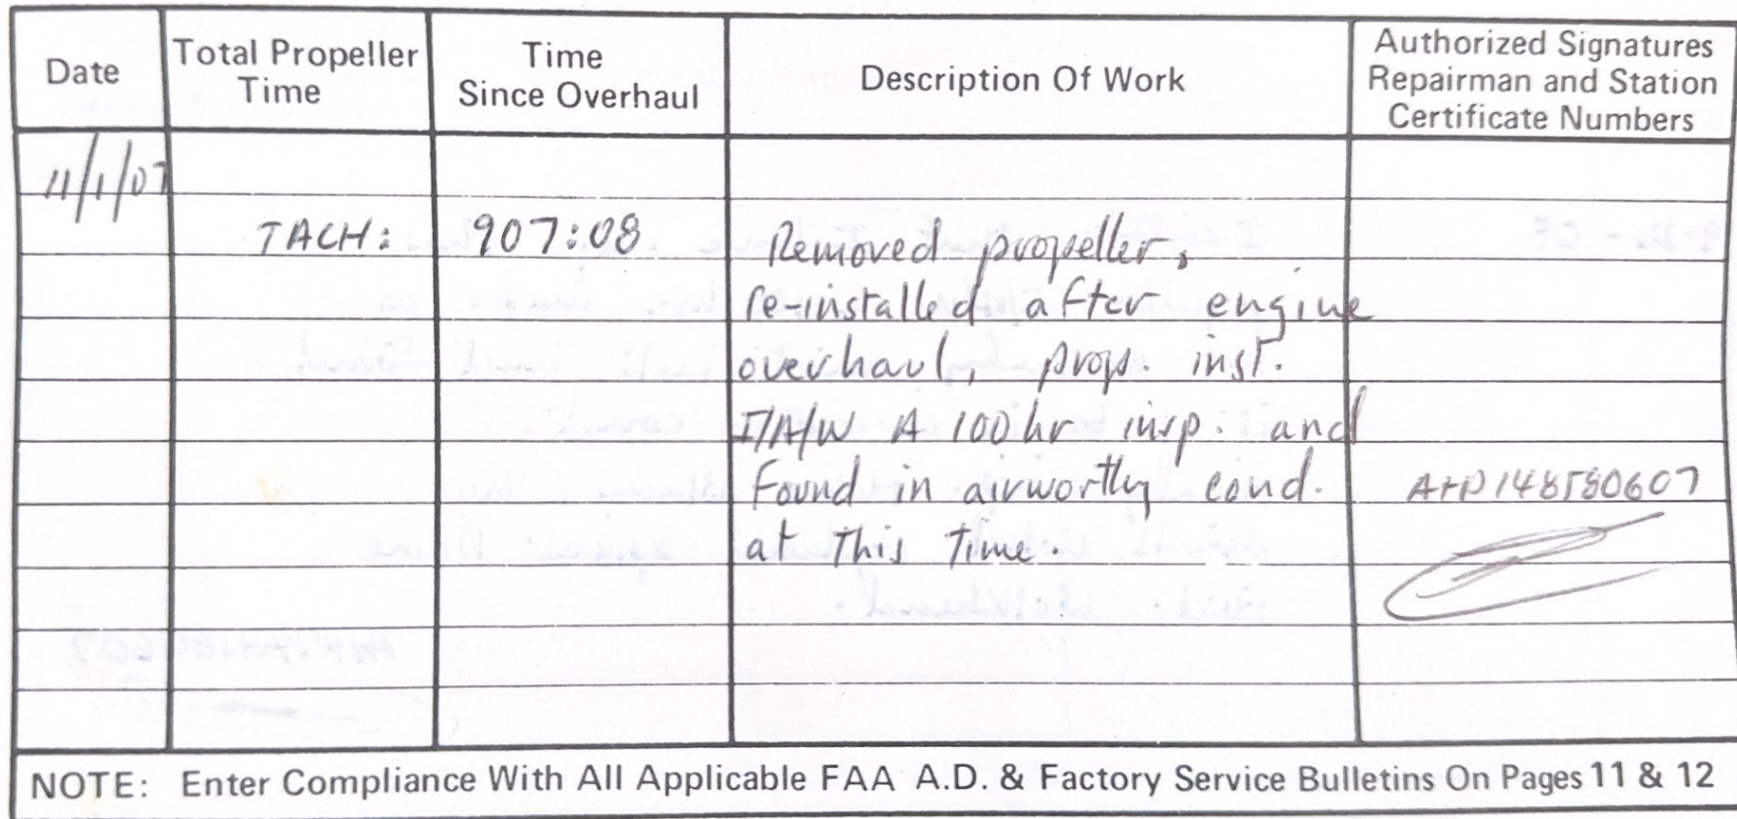 Date
Total Propeller
Time
Time
Since Overhaul
Description Of Work
Authorized Signatures
Repairman and Station
Certificate Numbers
11/1/07
TACH: 907:08
Removed propeller,
re-installed after engine
overhaul, prop. inst.
I/A/W A 100 hr insp. and
Found in airworthy cond.
at This Time.
A+P148580607
NOTE: Enter Compliance With All Applicable FAA A.D. & Factory Service Bulletins On Pages 11 & 12